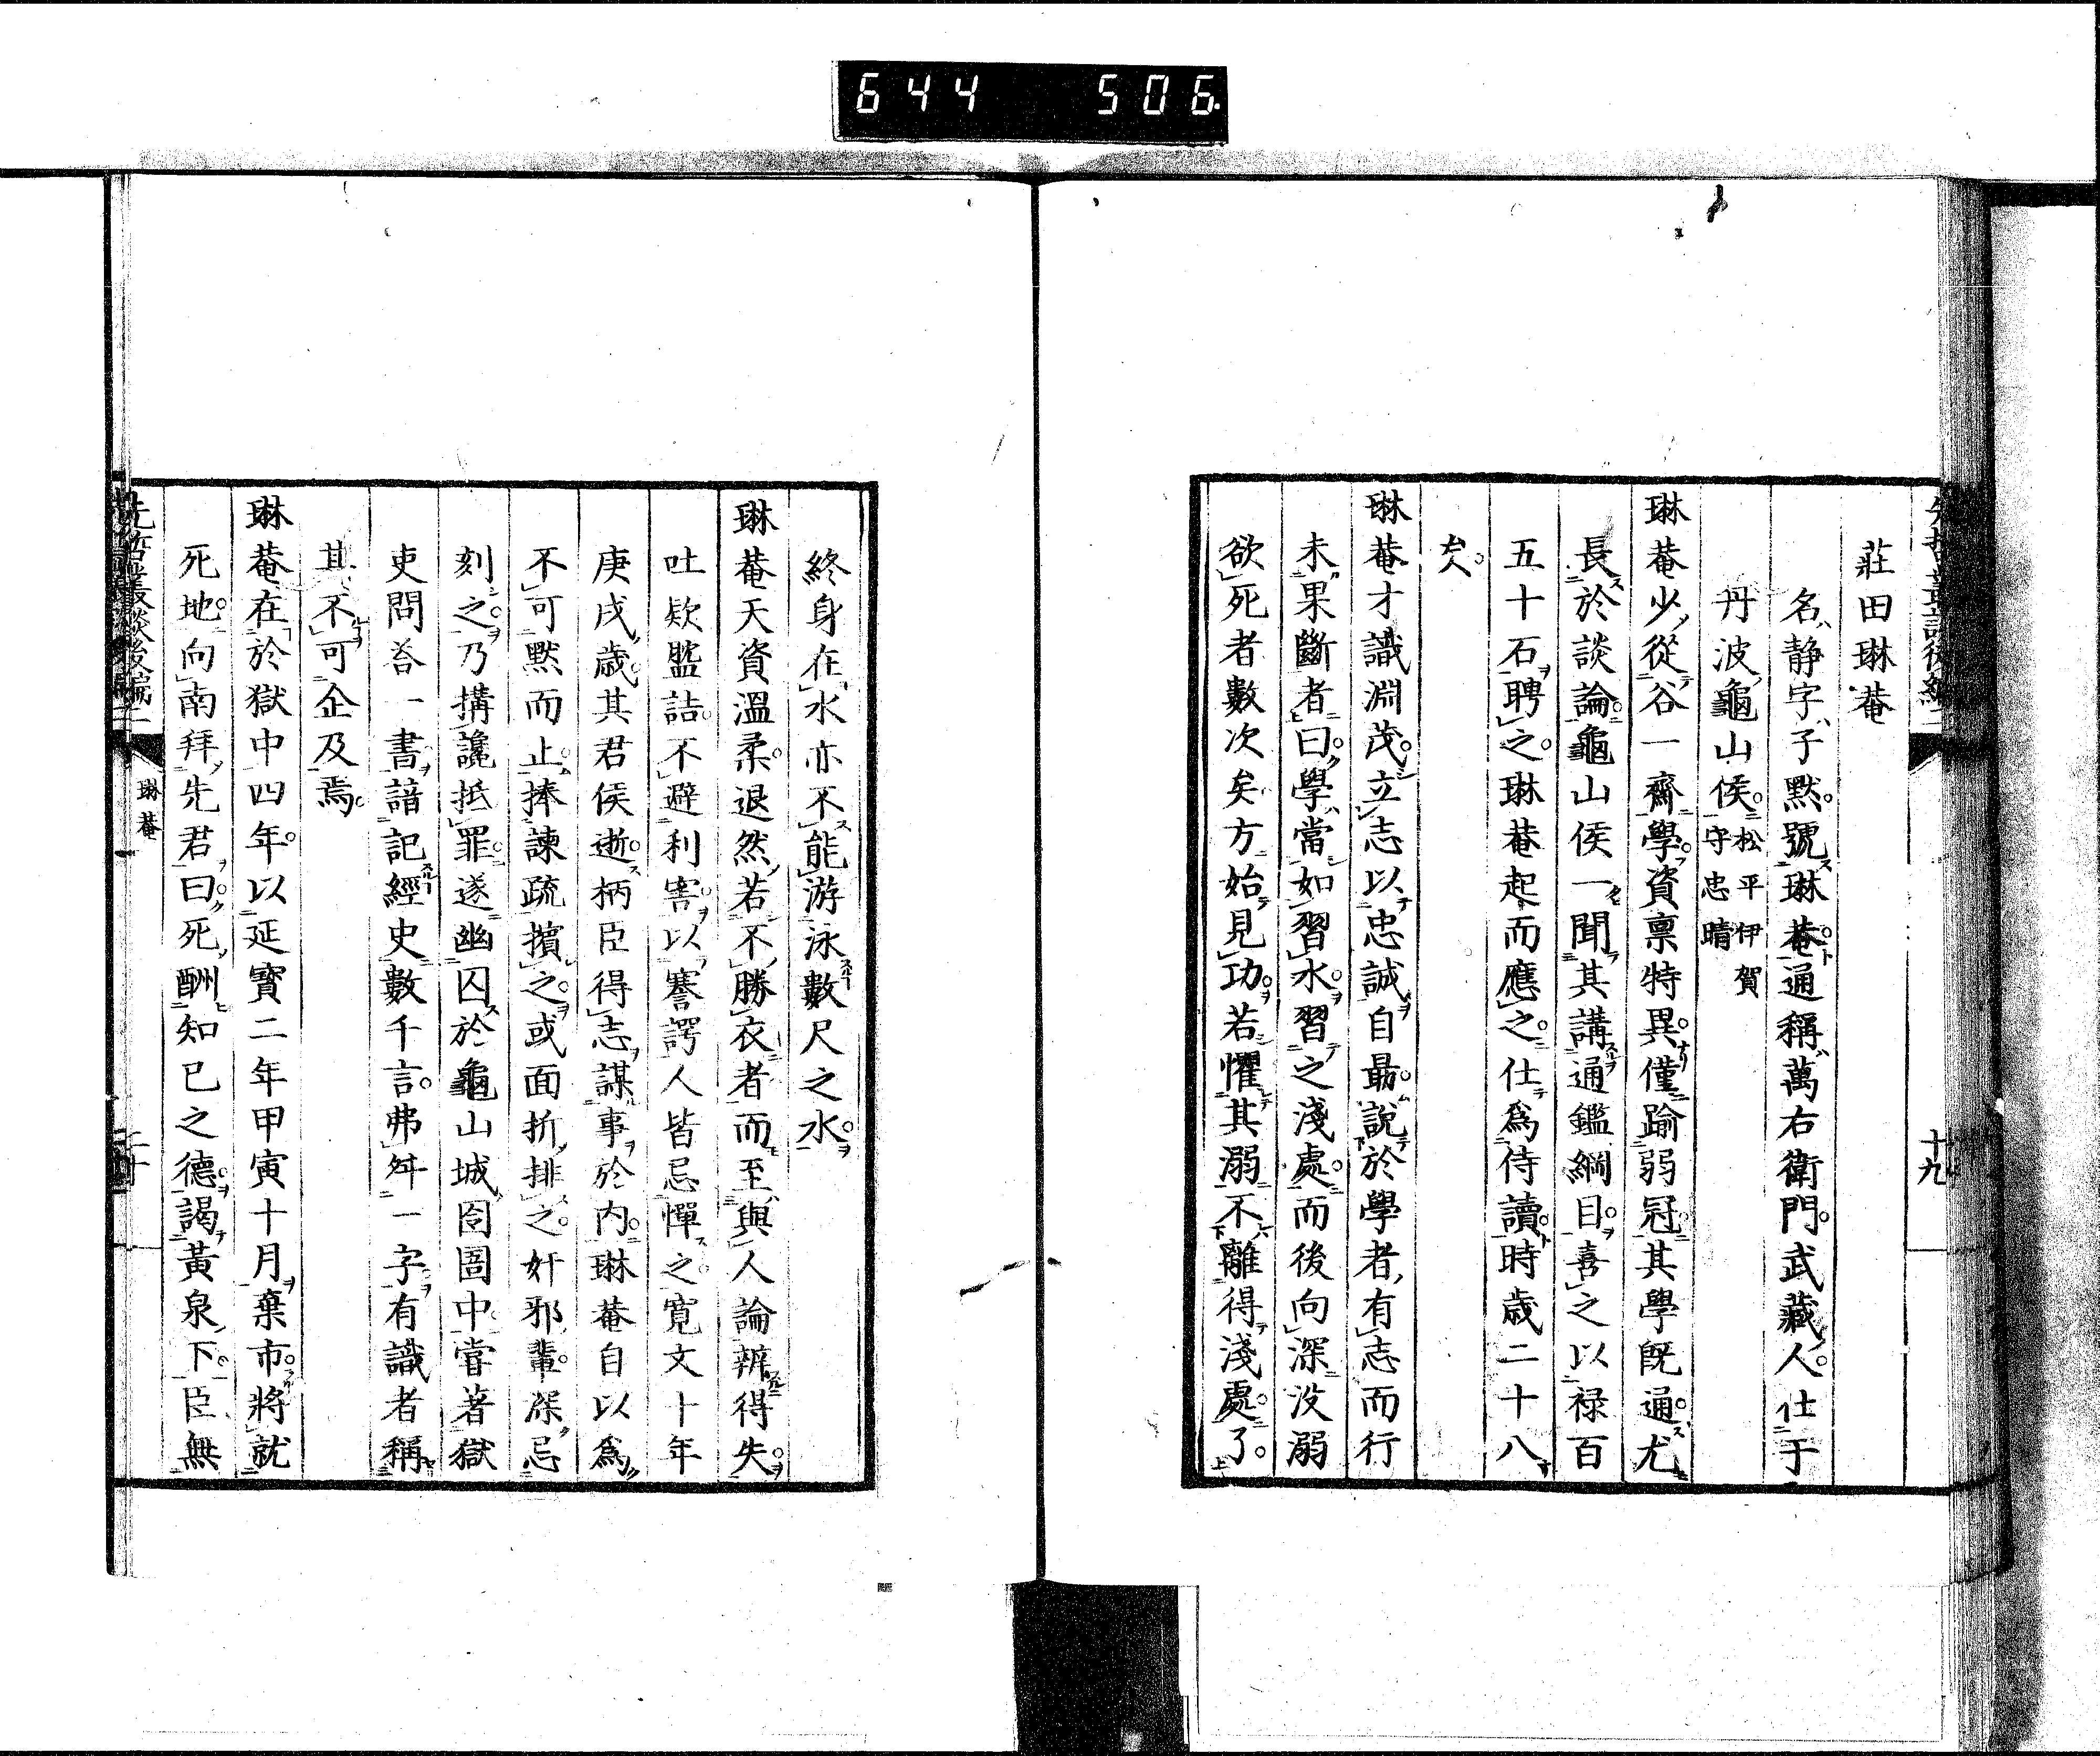 644 506
十九
莊田琳菴
名静字子默號琳菴通稱萬右衛門武藏人仕于
丹波龜山侯松平伊賀
守忠晴
琳菴少從谷一齋學資禀特異僅踰弱冠其學旣通尤
長於談論龜山侯一聞其講通鑑綱目喜之以禄百
五十石聘之琳菴起而應之仕爲侍讀時歳二十八
矣
琳菴才識淵茂立志以忠誠自勗說於學者有志而行
未果斷者曰學當如習水習之淺處而後向深没溺
欲死者數次矣方始見功若懼其溺不離得淺處了
終身在水亦不能游泳數尺之水
琳菴天資溫柔退然若不勝衣者而至與人論辨得失
吐欵盬詰不避利害以謇諤人皆忌憚之寬文十年
庚戌歳其君侯逝柄臣得志謀事於内琳菴自以爲
不可默而止捧諫疏擯之或面折排之奸邪輩深忌
刻之乃搆讒抵罪遂幽囚於龜山城囹圄中嘗著獄
吏問荅一書諳記經史數千言弗舛一字有識者稱
其不可企及焉
琳菴在於獄中四年以延寳二年甲寅十月棄市將就
死地向南拜先君曰死酬知已之德謁黃泉下臣無
先哲叢談後編二
琳菴
二十